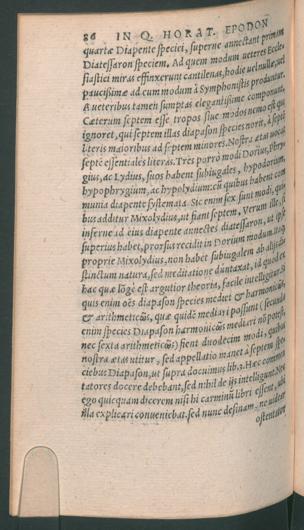 86 IN Q. HORAT. EPODON
quartæ Diapente speciei, superne annectant primam
Diatessaron speciem, Ad quem modum ueteres Eccle-
siastici miras effinxerunt cantilenas, hodie uel nullæ, uel
paucißimæ ad eum modum à Symphonistis produntur.
A ueteribus tamen sumptas elegantißime componunt.
Cæterum septem esse tropos siue modos nemo est qui
ignoret, qui septem illas diapason species norit, à septē
literis maioribus ad septem minores. Nostra ætas uocat
septē essentiales literas. Tres porrò modi Dorius, Phry-
gius, ac Lydius, suos habent subiugales, hypodorium,
hypophrygium, ac hypolydium: cū quibus habent com
munia diapente systemata. Sic enim sex sunt modi, qui-
bus additur Mixolydius, ut fiant septem, Verum ille, si
inferne ad eius diapente annectes diatessaron, ut
superius habet, prorsus recidit in Dorium modum.
proprie Mixolydius, non habet subiugalem ab alijs di-
stinctum natura, sed meditatione dūtaxat, id quod ex
hac quæ lōgè est argutior theoria, facile intelligitur. Si
quis enim oēs diapason species mediet & harmonicῶs,
& arithmeticῶs, quæ quidē mediari possunt (secunda
enim species Diapason harmonicῶs mediari nō potest,
nec sexta arithmeticῶs) fient duodecim modi, quibus
nostra ætas utitur, sed appellatio manet à septem spe-
ciebus Diapason, ut supra docuimus libro. Hæc commen
tatores docere debebant, sed nihil de ijs intelligunt. Nec
ego quicquam dicerem nisi hi carminū libri essent, ubi
illa explicari conueniebat. sed nunc desinam, ne uidear
ostentare